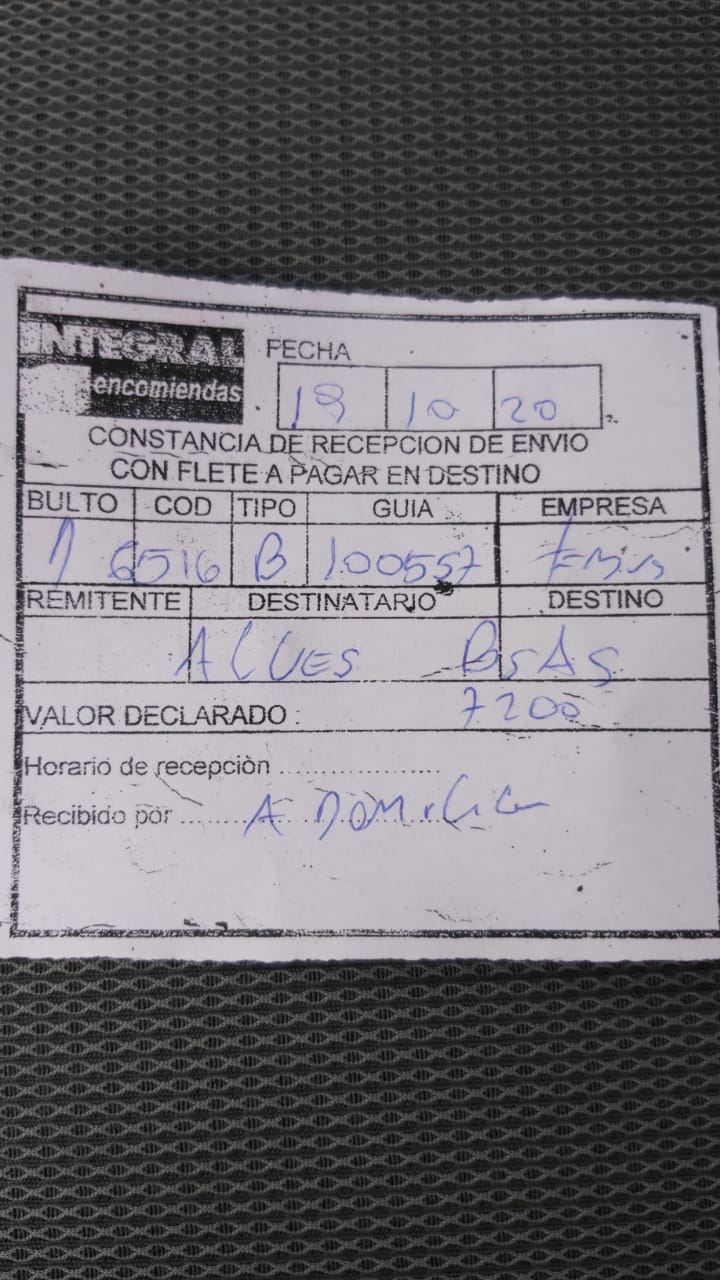 INTEGRAL
encomiendas
FECHA
19 10 20
CONSTANCIA DE RECEPCION DE ENVIO
CON FLETE A PAGAR EN DESTINO
BULTO COD TIPO GUIA EMPRESA
1 6516 B 100557
REMITENTE DESTINATARIO DESTINO
ALVES BSAS
VALOR DECLARADO : 7200
Horario de recepciòn ....................
Recibido por ...... A DOMICILIO